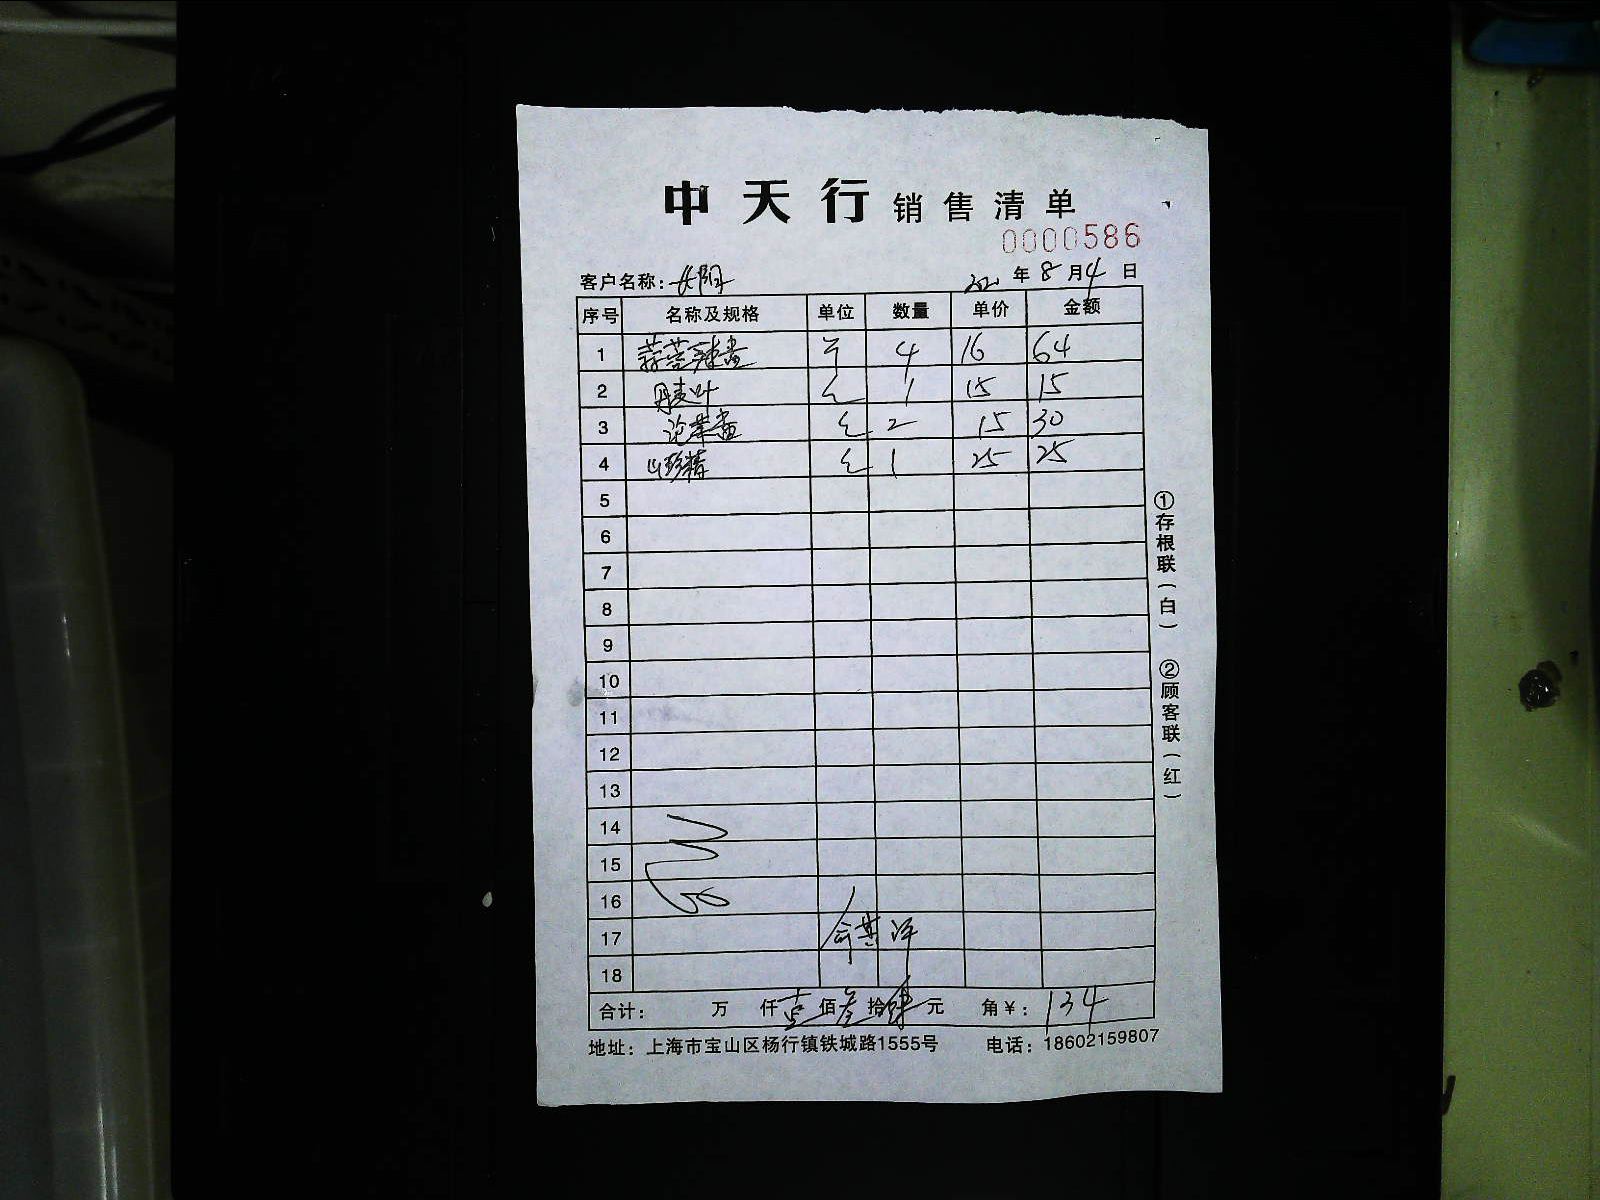 中天行 销售清单
0000586
客户名称: 年 8 月 4 日
序号 名称及规格 单位 数量 单价 金额
1 蒜蓉辣 4 16 64
2 1 15 15
3 2 15 30
4 山珍精 1 25 25
5
6
7
8
9
10
11
12
13
14
15
16
17
18
合计: 万 仟 壹 佰 叁 拾 肆 元 角￥: 134
地址: 上海市宝山区杨行镇铁城路1555号 电话: 18602159807
①存根联(白) ②顾客联(红)